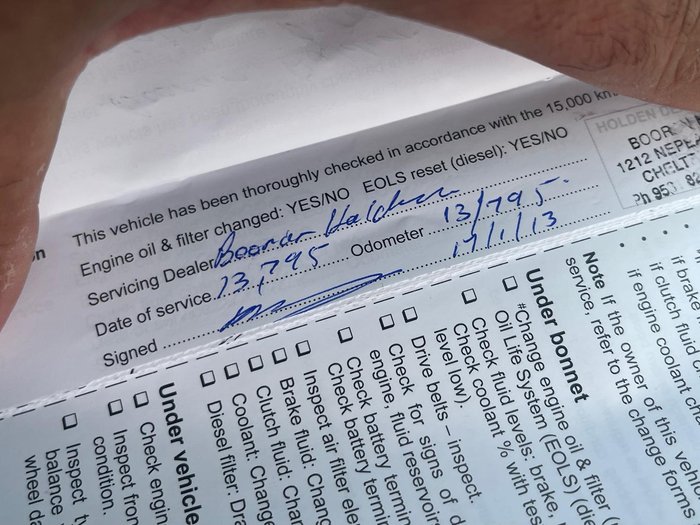 This vehicle has been thoroughly checked in accordance with the 15,000 km
Engine oil & filter changed: YES/NO EOLS reset (diesel): YES/NO
Servicing Dealer Boorner Holden
Date of service 13,795 Odometer 13/795.
Signed 17/1/13
HOLDEN
BOOR
1212 NEPE
CHELTE
Ph 95
Note If the owner of this
service, refer to the change
if engine coolant
if clutch fluid
if brake
Under bonnet
#Change engine oil & filter
Oil Life System (EOLS)
Check fluid levels: brake,
Check coolant % with
level low).
Drive belts – inspect
Check for signs of
engine, fluid
Check battery
Check battery
Inspect air filter
Brake fluid:
Clutch fluid:
Coolant:
Diesel filter:
Under vehicle
Check
Inspect
condition.
Inspect
balance
wheel